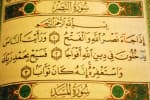 سورة النصر
بسم الله الرحمن الرحيم
إذا جاء نصر الله والفتح ۝ ورأيت الناس
يدخلون في دين الله أفواجا ۝ فسبح بحمد ربك
واستغفره إنه كان توابا ۝
سورة المسد